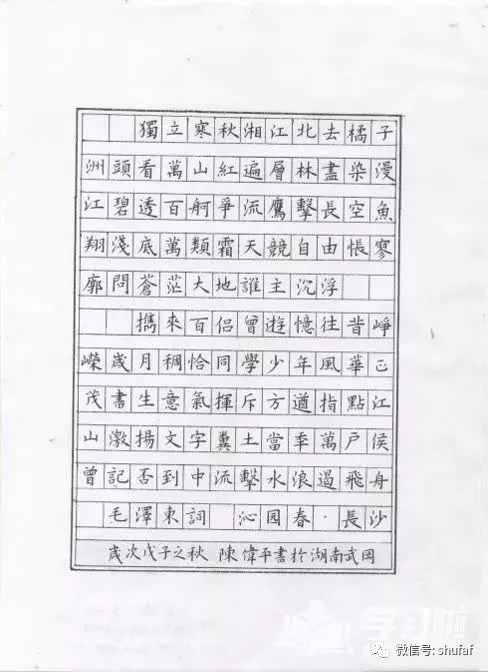 獨立寒秋湘江北去橘子
洲頭看萬山紅遍層林盡染漫
江碧透百舸爭流鷹擊長空魚
翔淺底萬類霜天競自由悵寥
廓問蒼茫大地誰主沉浮
攜來百侶曾遊憶往昔崢
嶸歲月稠恰同學少年風華正
茂書生意氣揮斥方遒指點江
山激揚文字糞土當年萬戶侯
曾記否到中流擊水浪遏飛舟
毛澤東詞 沁园春·長沙
歲次戊子之秋 陳偉平書於湖南武岡
学习啦
微信号: shufaf